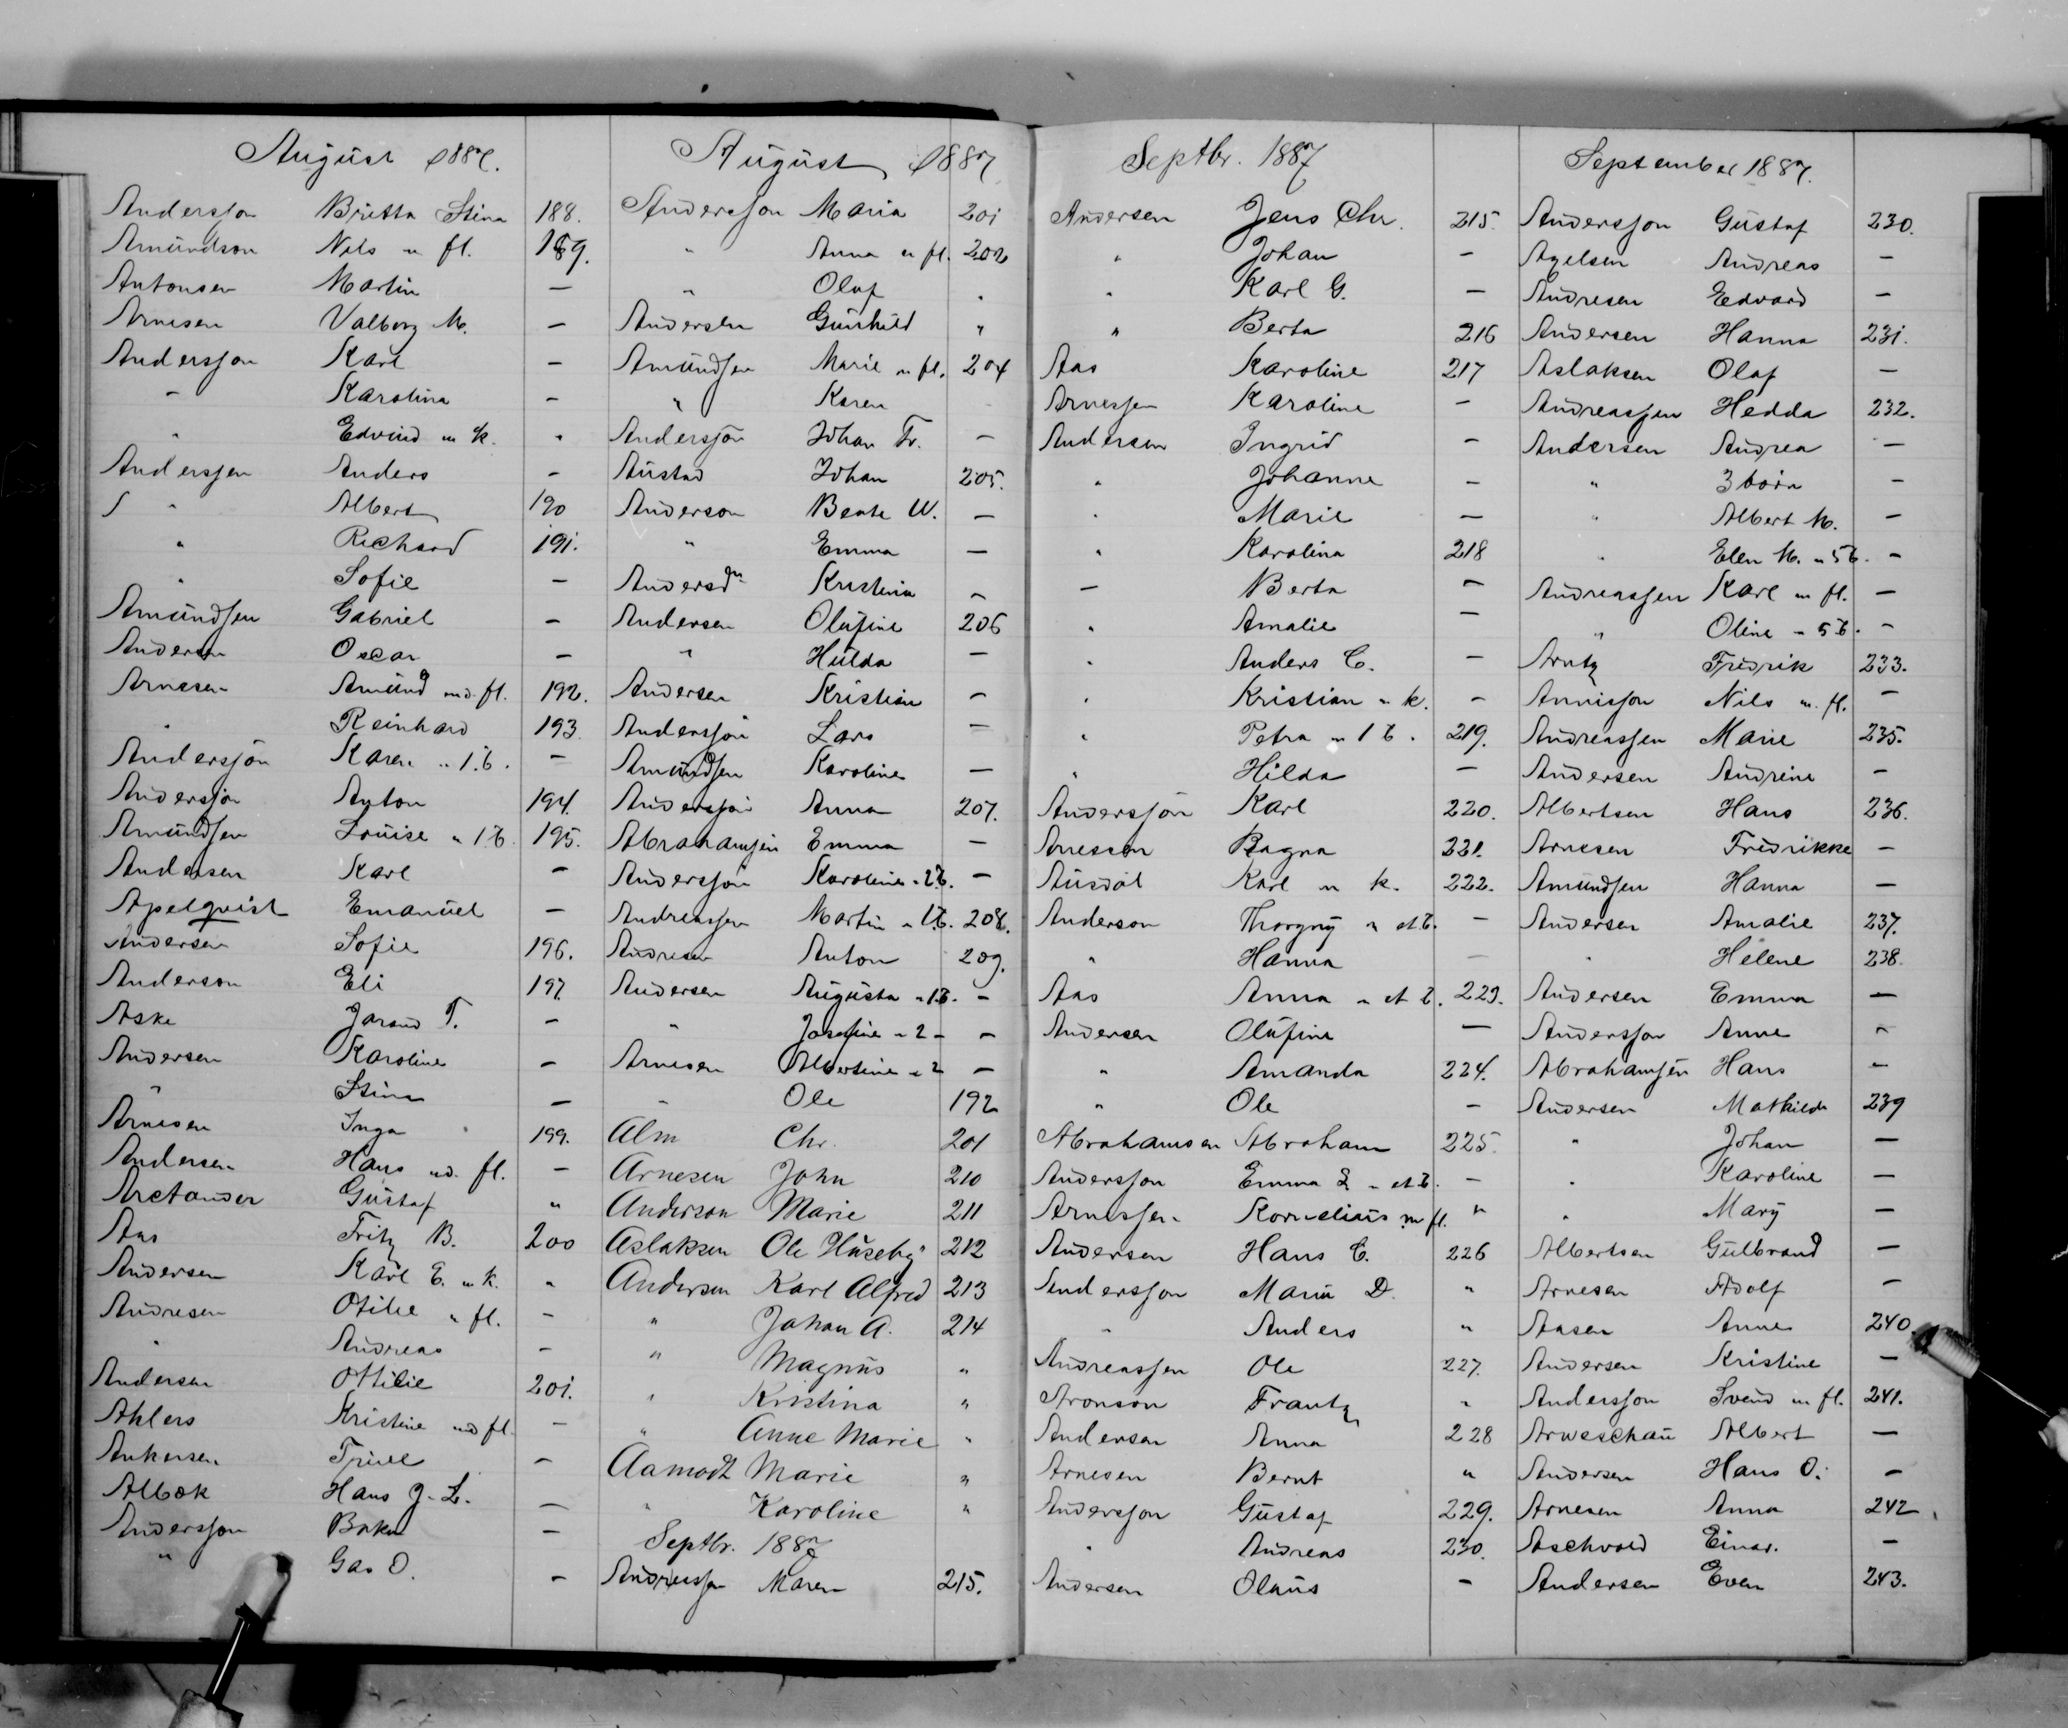 August 1887.
Andersson Britta Stina 188.
Amundson Nils m fl. 189.
Antonsen Martin —
Arnesen Valborg M. —
Andersson Karl —
" Karolina -
" Edvind m k. "
Anderssen Anders -
" Albert 190
" Richard 191.
" Sofie —
Amundsen Gabriel -
Andersen Oscar —
Arnesen Amund md. fl. 192.
" Reinhard 193
Andersson Karen " 1.b. —
Andersson Anton 194.
Amundsen Louise " 1 b. 195.
Andersen Karl —
Apelqvist Emanuel —
Andersen Sofie 196.
Anderson Eli 197
Aske T. —
Andersen Karoline —
" Stina —
Arnesen Inga 199.
Andersen Hans md. fl. —
Arctander Gustaf "
Aas Fritz B. 200
Andersen Karl E. m k. "
Andresen Otilie " fl. -
" Andreas -
Andersen Ottilie 201.
Ahlers Kristine md fl. —
Ankersen —
Albæk Hans J. L. —
Andersson —
" O. -
August 1887
Andersson Maria 201
" Anna m fl. 202
" Olaf "
Andersen Gunhild "
Amundsen Marie m fl. 204
" Karen
Andersson Johan Fr. —
Austad Johan 205.
Anderson Beate W. —
" Emma —
Anderson Kristina —
Andersen Olufine 206
" Hulda —
Andersen Kristian —
Andersson Lars —
Amundsen Karoline —
Andersson Anna 207.
Abrahamsen Emma —
Andersson Karoline " 2 b. —
Andreassen Martin " 1 b. 208.
Andresen Anton 209.
Andersen Augusta " 1 b. -
" Josefine " 2 - -
Arnesen Albertine " 2 —
" Ole 192
Alm Chr. 201
Arnesen John 210
Anderson Marie 211
Aslaksen Ole Huseby 212
Andersen Karl Alfred 213
" Johan A. 214
" Magnus "
" Kristina "
" Anne Marie "
Aamodt Marie "
" Karoline "
Septbr. 1887
Andreassen Maren 215.
Septbr. 1887
Andersen Jens Chr. 215.
" Johan —
" Karl G. —
" Berta 216
Aas Karoline 217
Arnessen Karoline —
Andersen Ingrid —
" Johanne —
" Marie —
" Karolina 218
— Berta —
" Amalie —
" Anders C. —
" Kristian " k. -
" Petra " 1 b. 219.
" Hilda —
Andersson Karl 220.
Arnesson Ragna 221.
Ausdal Karl m k. 222.
Anderson Thorgny " et b. —
" Hanna —
Aas Anna " et b. 223.
Andersen Olufine —
" Amanda 224.
" Ole -
Abrahamsen Abraham 225.
Andersson Emma L " et b. —
Arnessen Kornelius m fl. "
Andersen Hans C. 226
Andersson Maria D. "
" Anders "
Andreassen Ole 227.
Aronson Frantz "
Andersen Anna 228
Arnesen Bernt "
Andersson Gustaf 229.
" Andreas 230.
Andersen Olaus -
September 1887.
Andersson Gustaf 230.
Axelsen Andreas —
Andresen Edvard —
Andersen Hanna 231.
Aslaksen Olaf —
Andreassen Hedda 232.
Andersen Andrea —
" 3 børn —
" Albert M. —
" Elen M. " 5 b. -
Andreassen Karl m fl. —
" Oline " 5 b. -
Arntz Fredrik 233.
Annisson Nils m. fl. —
Andreassen Marie 235.
Andersen Andrine -
Albertsen Hans 236.
Arnesen Fredrikke —
Amundsen Hanna —
Andersen Amalie 237.
" Helene 238.
Andersen Emma —
Andersson Anne "
Abrahamsen Hans —
Andersen Mathilde 239
" Johan —
" Karoline —
" Mary —
Albertsen Gulbrand —
Arnesen Adolf —
Aasen Anne 240.
Andersen Kristine —
Andersson Svend m fl. 241.
Arweschau Albert —
Andersen Hans O. —
Arnesen Anna 242
Einar. —
Andersen Even 243.